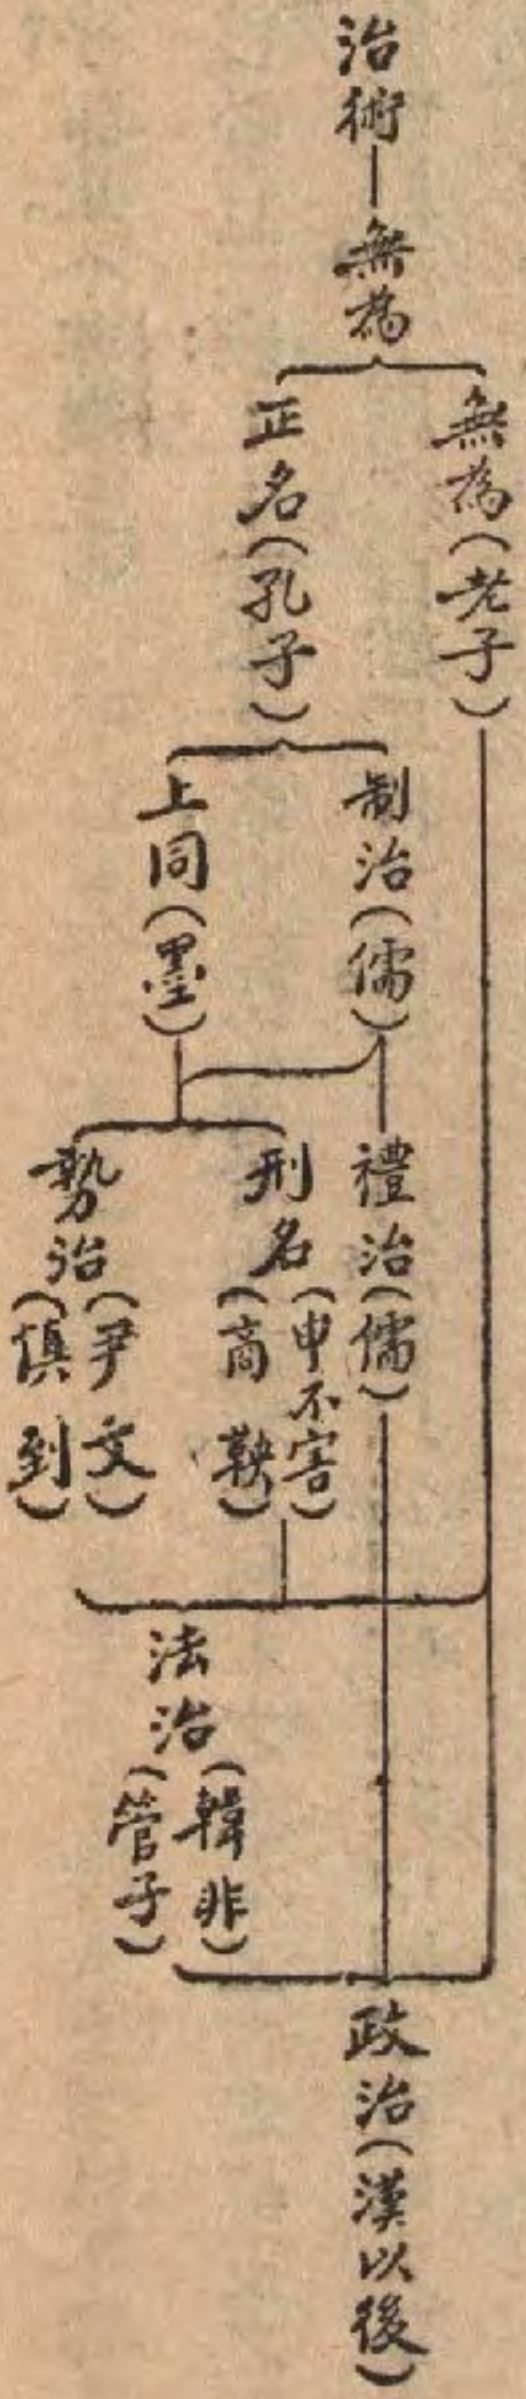 治術—無為
無為（老子）
正名（孔子）
制治（儒）
上同（墨）
禮治（儒）
刑名（申不害）（商鞅）
勢治（尹文）（慎到）
法治（韓非）（管子）
政治（漢以後）